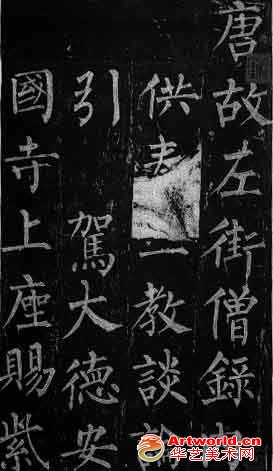 唐故左街僧錄
供教談論
引駕大德安
國寺上座賜紫
Artworld.cn
华艺美术网